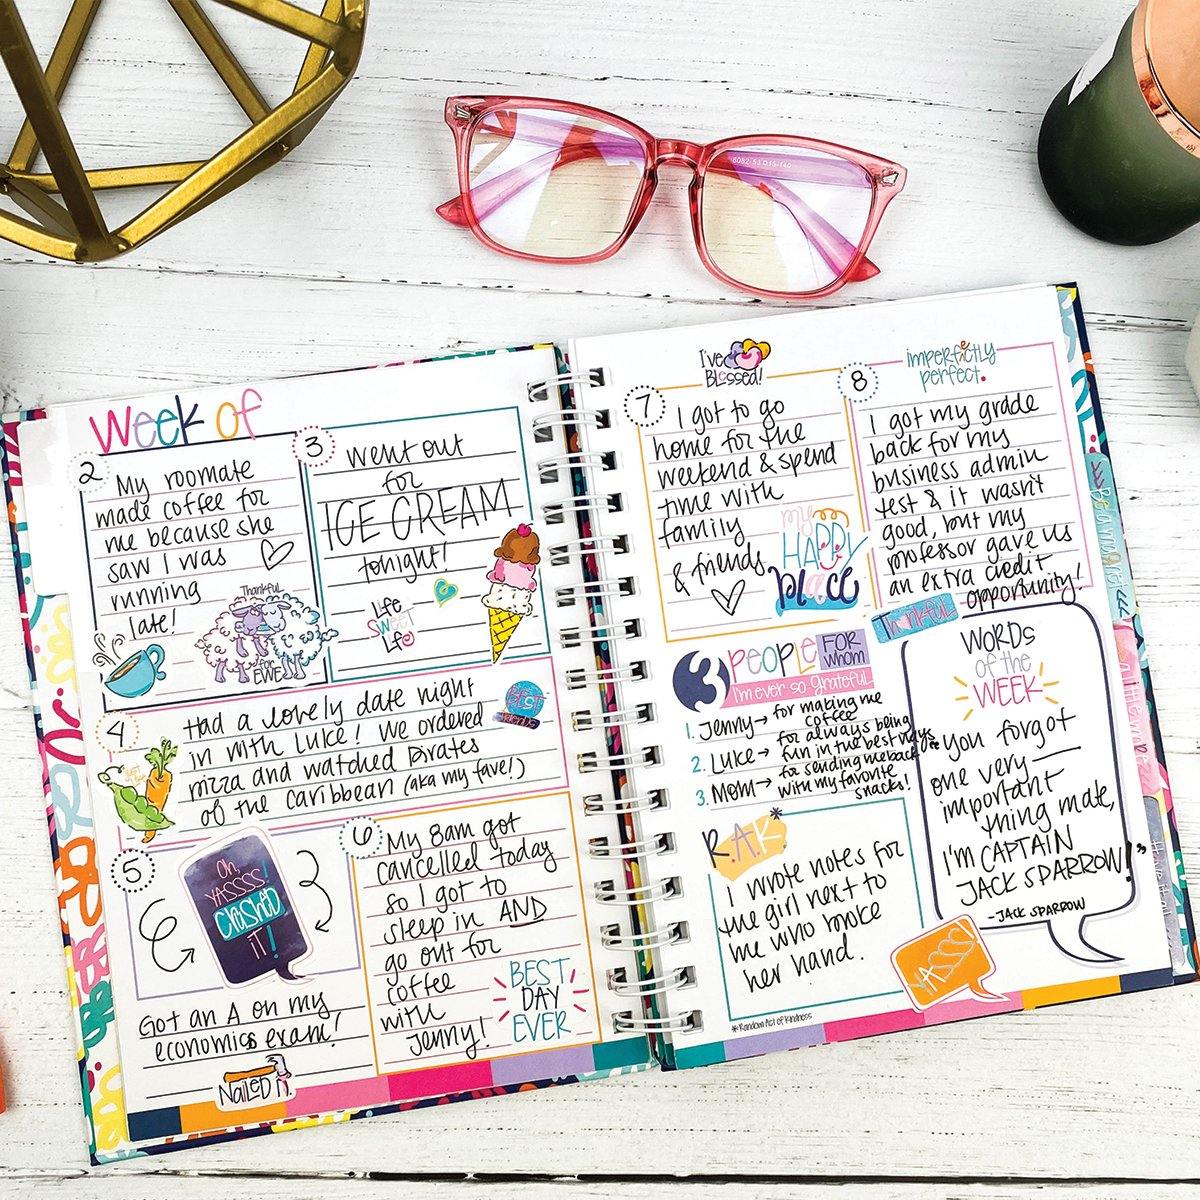 6082 53□15-140
Week of
2
My roomate
made coffee for
me because she
saw I was
running
late!
Thankful
for
EWE
3
Went out
for
ICE CREAM
tonight!
Life
Sweet
Life!
4
Had a lovely date night
in with Luke! We ordered
pizza and watched Pirates
of the Caribbean (aka my fave!)
BEST
5
Oh,
YASSSS!
CRUSHED
IT!
Got an A on my
economics exam!
NAILED IT.
6
My 8am got
cancelled today
so I got to
sleep in AND
go out for
coffee
with
Jenny!
BEST
DAY
EVER
I've
BLessed!
7
I got to go
home for the
weekend & spend
time with
family
& friends.
my
HAPPY
place
8
imperfectly
perfect.
I got my grade
back for my
business admin
test & it wasn't
good, but my
professor gave us
an extra credit
opportunity!
Thankful
3 PEOPLE FOR whom
I'm ever so grateful
1. Jenny → for making me
coffee
2. Luke → for always being
fun in the best ways
3. Mom → for sending me back
with my favorite
snacks!
R.A.K*
I wrote notes for
the girl next to
me who broke
her hand.
*Random Act of Kindness
WORDS
of the
WEEK
"you forgot
one very
important
thing mate,
I'm CAPTAIN
JACK SPARROW!"
-JACK SPARROW
YASSS!